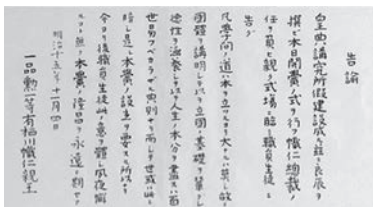 告諭
皇典講究所假建設成ル茲ニ良辰ヲ
撰ビ本日開黌ノ式ヲ行フ幟仁總裁ノ
任ヲ負ヒ親ク式場ニ臨ミ職員生徒ニ
告グ
凡學問ノ道ハ本ヲ立ツルヨリ大ナルハ莫シ故ニ
國體ヲ講明シテ以テ立國ノ基礎ヲ鞏クシ
德性ヲ涵養シテ以テ人生ノ本分ヲ盡スハ百
世易フベカラザル典則ナリ而シテ世或ハ此ニ
暗シ是レ本黌ノ設立ヲ要スル所以ナリ
今ヨリ後職員生徒此ノ意ヲ體シ夙夜懈
ルコト無ク本黌ノ隆昌ヲ永遠ニ期セヨ
明治十五年十一月四日
一品勲一等有栖川幟仁親王